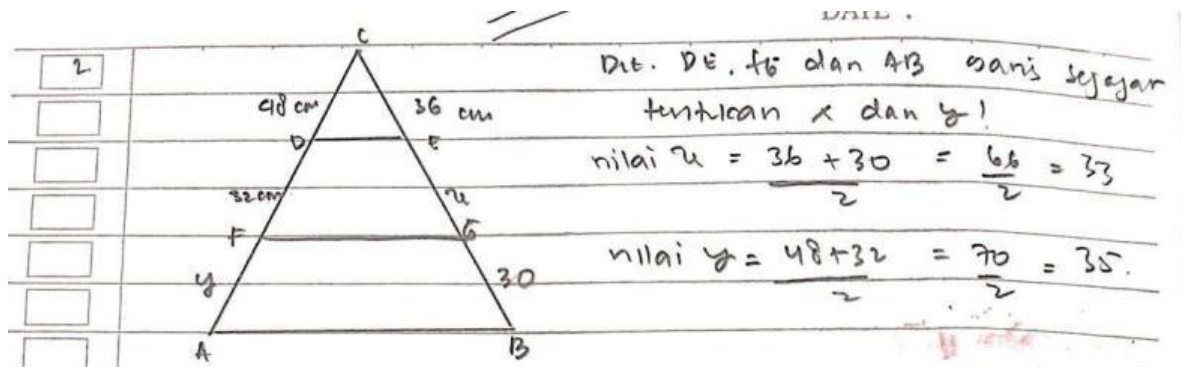 2
C
48 cm
36 cm
D
E
32 cm
x
F
G
y
30
A
B
Dit. DE. FG dan AB garis sejajar
tentukan x dan y!
nilai x = 36 + 30 / 2 = 66 / 2 = 33
nilai y = 48 + 32 / 2 = 70 / 2 = 35.